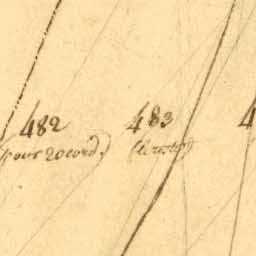 482
(pour 20 cord.)
483
4